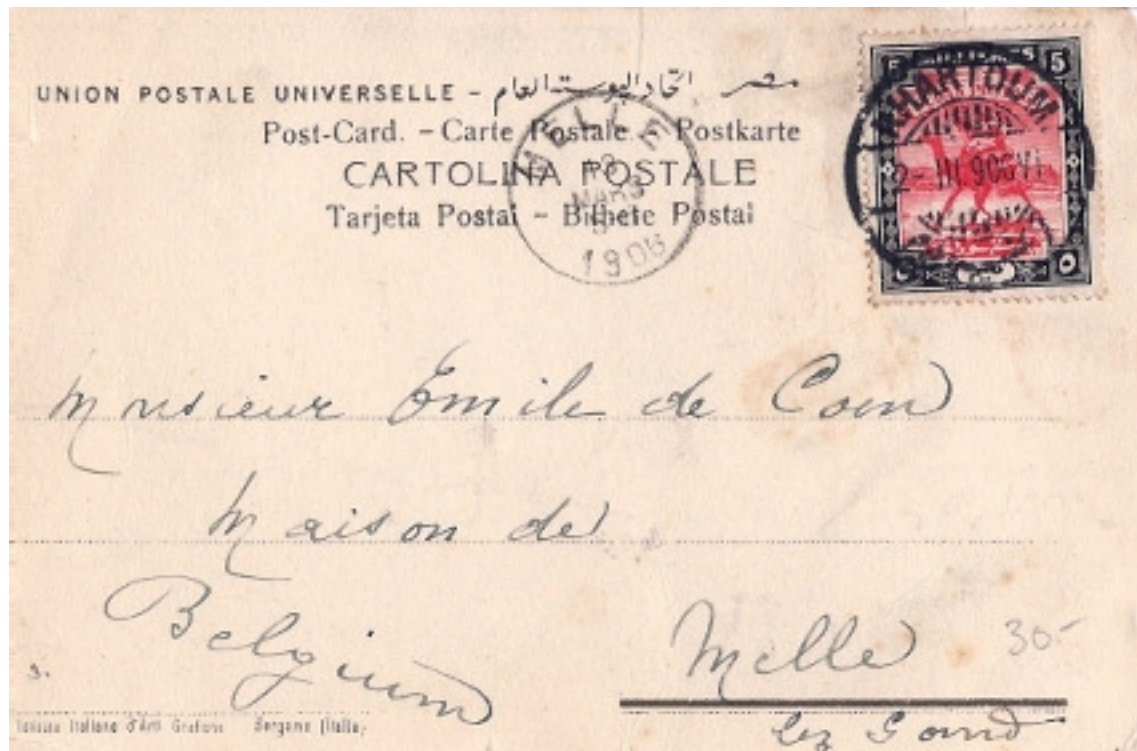 UNION POSTALE UNIVERSELLE - اتحاد البوستة العام مصر
Post-Card. - Carte Postale - Postkarte
CARTOLINA POSTALE
Tarjeta Postal - Bilhete Postal
MELLE
MARS
1906
5 MILLIEMES 5
KHARTOUM
Monsieur Emile de Coen
Maison de
Belgium
Melle
lez Gand
30-
3.
Italiano d'Arti Grafiche Bergamo (Italia)